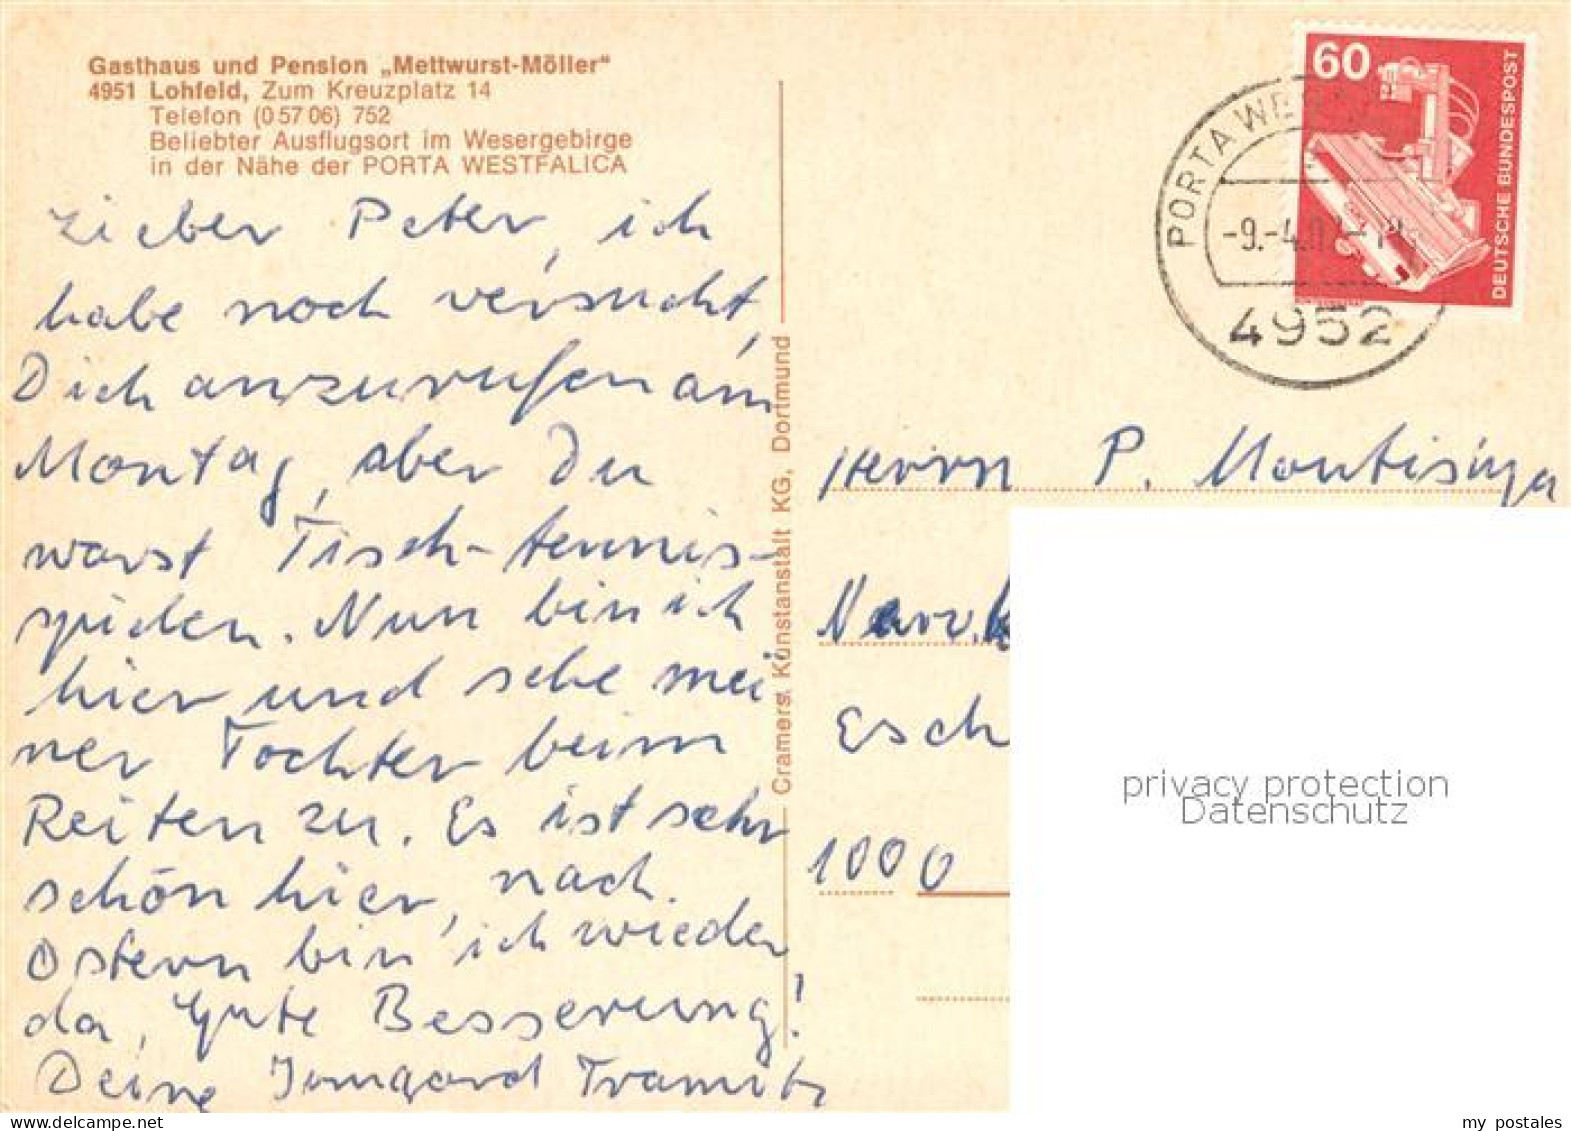 Gasthaus und Pension „Mettwurst-Möller"
4951 Lohfeld, Zum Kreuzplatz 14
Telefon (0 57 06) 752
Beliebter Ausflugsort im Wesergebirge
in der Nähe der PORTA WESTFALICA
Lieber Peter, ich
habe noch versucht,
Dich anzurufen am
Montag, aber Du
warst Tisch-tennis-
spielen. Nun bin ich
hier und sehe mei
ner Tochter beim
Reiten zu. Es ist sehr
schön hier, nach
Ostern bin ich wieder
da, Gute Besserung!
Deine Irmgard Tramitz
Cramers Kunstanstalt KG, Dortmund
60
DEUTSCHE BUNDESPOST
PORTA WE
-9.-4.
4952
Herrn P.
Esch
1000
privacy protection
Datenschutz
my postales